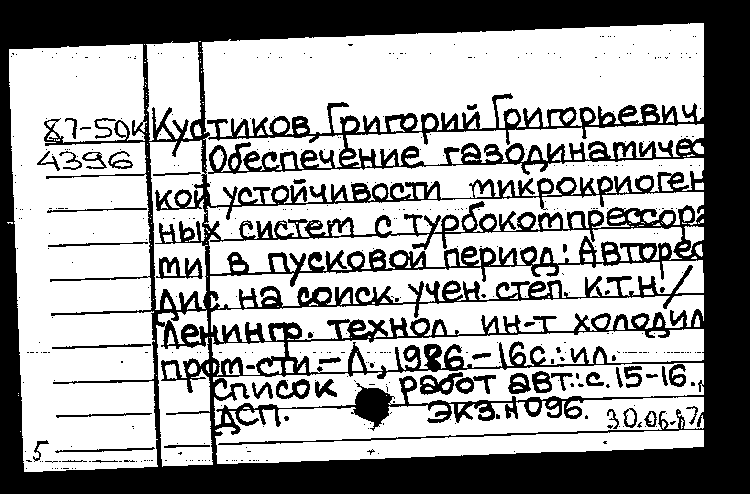 87-50к Кустиков, Григорий Григорьевич.
4396 Обеспечение газодинамичес
кой устойчивости микрокриоген
ных систем с турбокомпрессора
ми в пусковой период: Автореф
дис. на соиск. учен. степ. к.т.н./
Ленингр. технол. ин-т холодил
пром-сти.-Л., 1986.-16с.:ил.
Список работ авт.:с.15-16.
ДСП. Экз.н096.
30.06.87
5